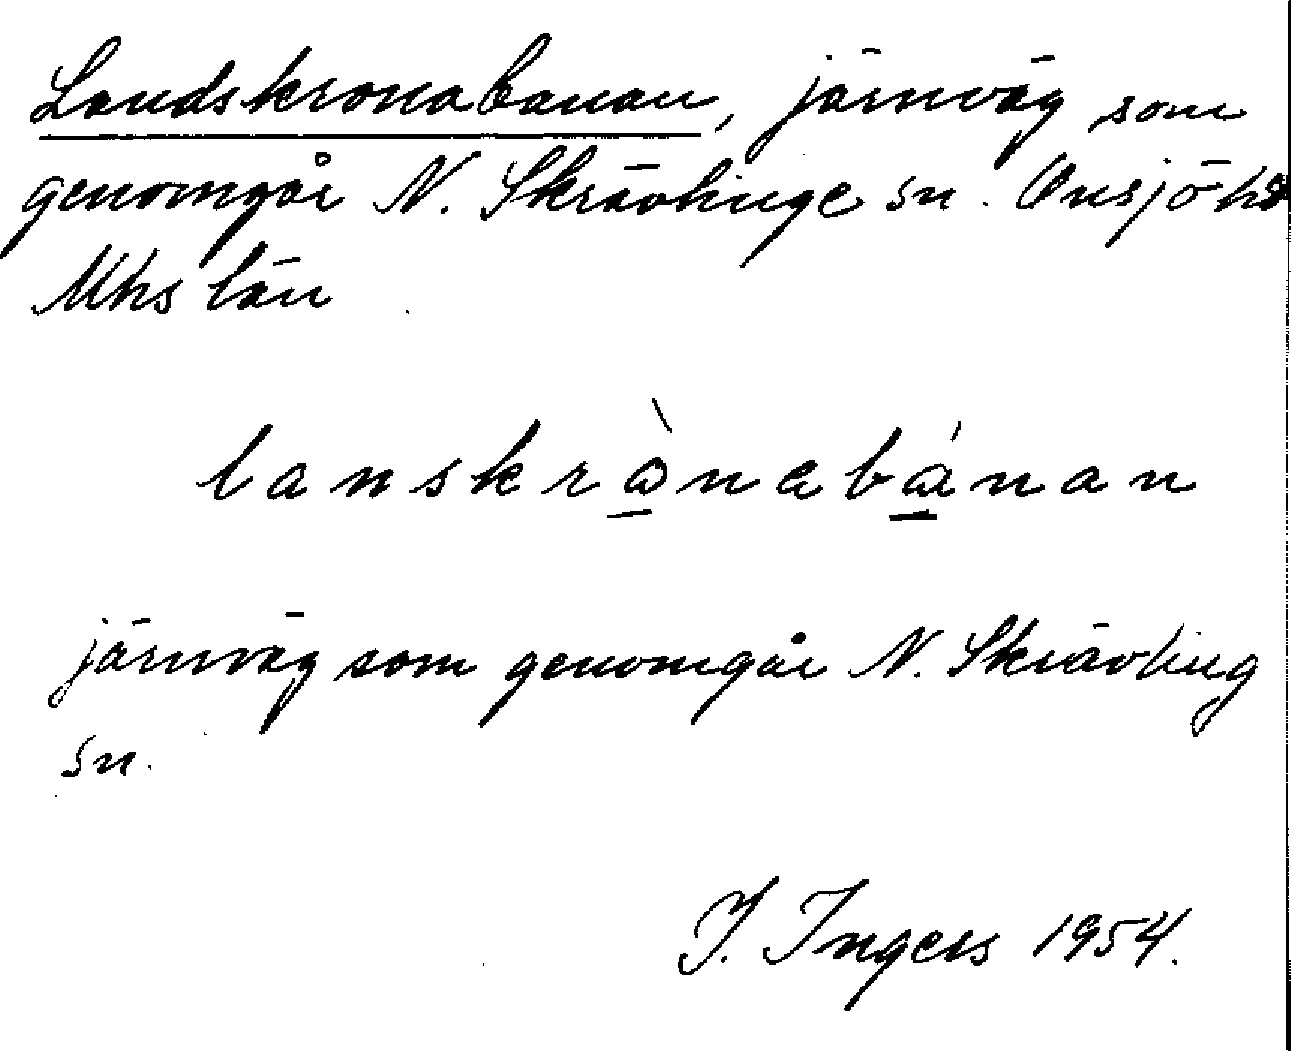 Landskronabanan, järnväg som
genomgår N. Skrävlinge sn. Onsjö hd
Mhs län
lanskrònabánan
järnväg som genomgår N. Skrävling
sn.
I. Ingers 1954.